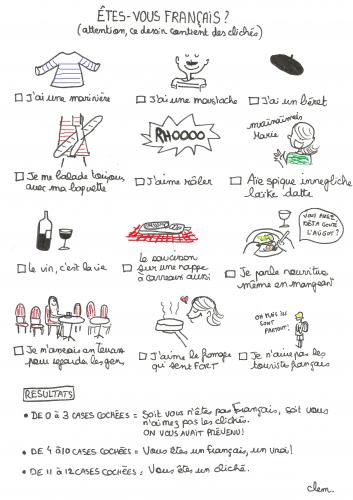 ÊTES-VOUS FRANÇAIS ?
(attention, ce dessin contient des clichés)
J'ai une marinière
J'ai une moustache
J'ai un béret
Je me balade toujours
avec ma baguette
RHOOOO
J'aime râler
Marie
Aïe spique innegliche
laïke datte
Le vin, c'est la vie
Le saucisson
sur une nappe
à carreaux aussi
VOUS AVEZ
DÉJÀ GOUTÉ
Je parle nourriture
même en mangeant
Je m'assois en terrasse
pour regarder les gens
J'aime le fromage
qui sent FORT
OH MAIS ILS
SONT
PARTOUT!
Je n'aime pas les
touristes français
RESULTATS
• DE 0 à 3 CASES COCHÉES = Soit vous n'êtes pas français, soit vous
n'aimez pas les clichés.
ON VOUS AVAIT PRÉVENU!
• DE 4 à 10 CASES COCHÉES = Vous êtes un français, un vrai!
• DE 11 à 12 CASES COCHÉES = Vous êtes un cliché.
Clem.